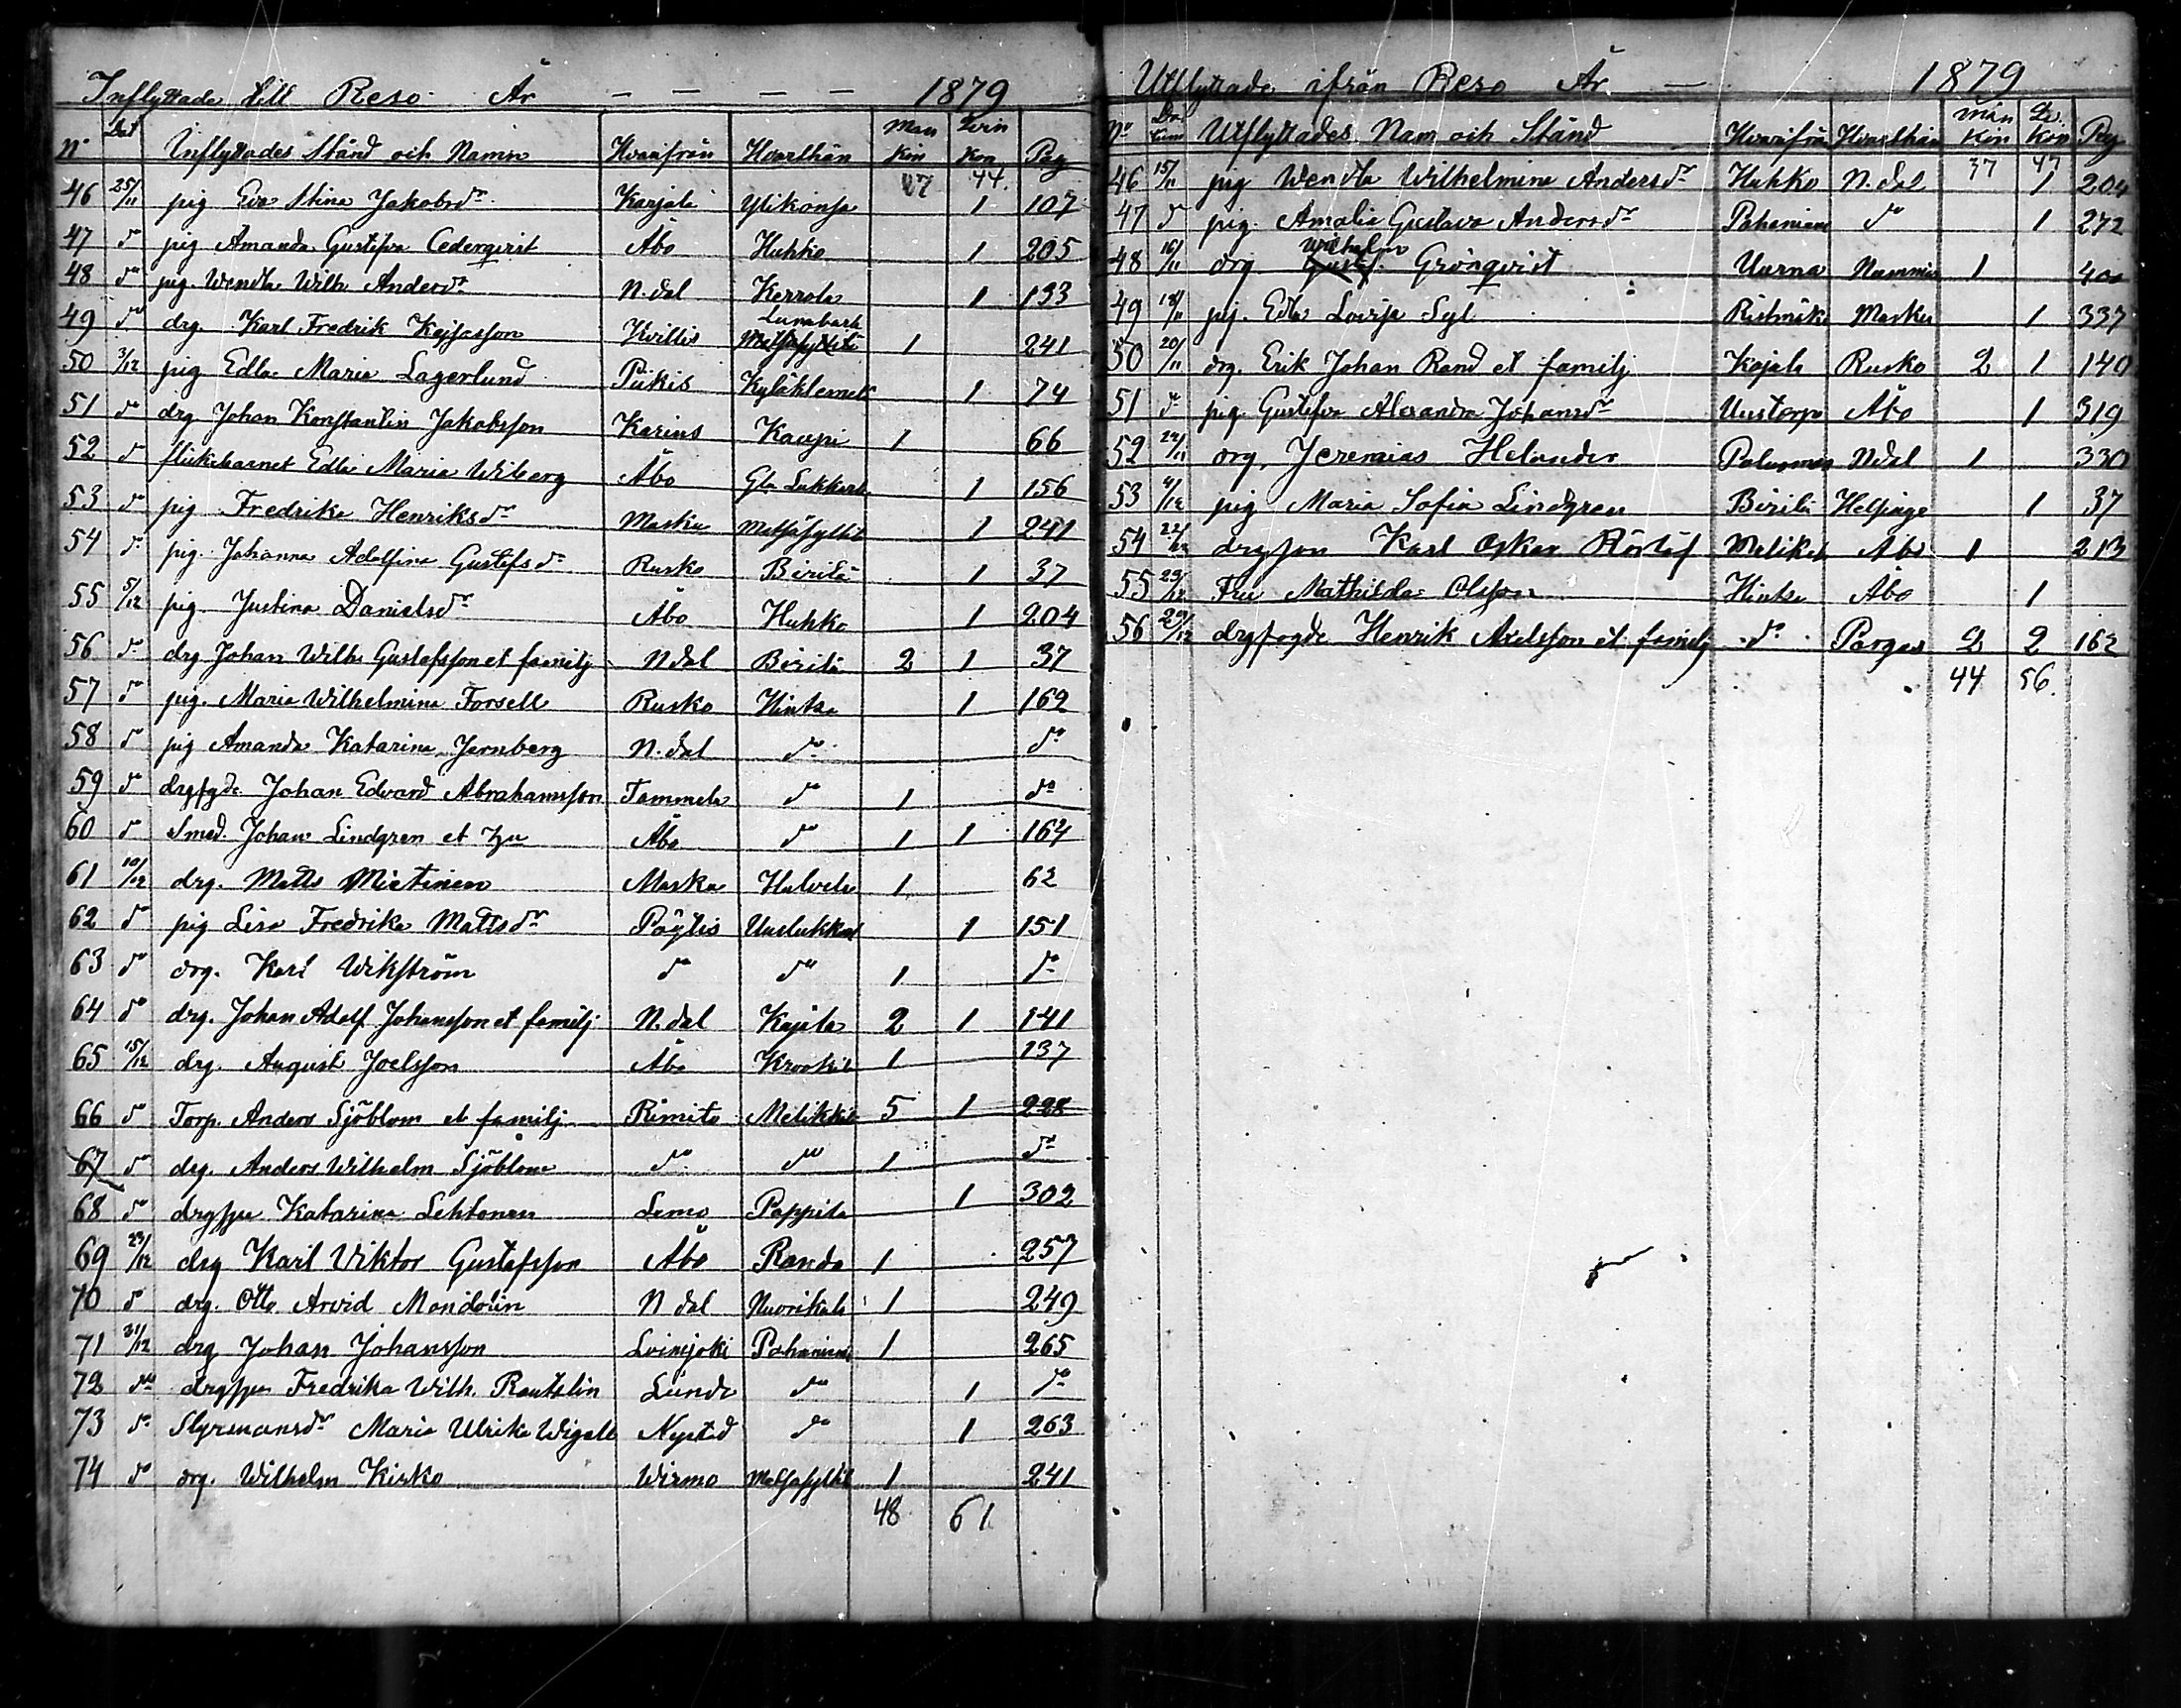 Inflyttade till Reso År - - - - 1879
No Dat Inflyttades Stånd och Namn Hvarifrån Hvarthän Man kön Qvin kön Pag
27 44.
46 25/11 pig Eva Stina Jakobsdr Karjala Ylikonsa 1 107
47 do pig Amanda Gustafva Cederqvist Åbo Huhko 1 205
48 do pig. Wendla Wilh. Andersdr N.dal Kerrola 1 133
Lunabacka
49 do drg. Karl Fredrik Kajsasson Hvittis 1 241
50 3/12 pig Edla Maria Lagerlund Pikis 1 74
51 do drg Johan Konstantin Jakobsson Karins Kaupi 1 66
52 do flickebarnet Edla Maria Wiberg Åbo Gla Lukkarla 1 156
53 do pig Fredrika Henriksdr Masku 1 241
54 do pig. Johanna Adolfina Gustafsdr Rusko Birilä 1 37
55 5/12 pig. Justina Danielsdr Åbo Huhko 1 204
56 do drg Johan Wilh. Gustafsson et familj N.dal Birilä 2 1 37
57 do pig. Maria Wilhelmina Forsell Rusko Hintsa 1 162
58 do pig Amanda Katarina Jernberg N.dal do do
59 do drgfgde Johan Edvard Abrahamsson Tammela do 1 do
60 do Smed. Johan Lindgren et hu Åbo do 1 1 164
61 10/12 drg. Matts Mietinen Masku Halvela 1 62
62 do pig Lisa Fredrika Mattsdr Pöytis 1 151
63 do drg. Karl Wikström do do 1 do
64 do drg. Johan Adolf Johansson et familj N.dal Kajala 2 1 141
65 15/12 drg. August Joelsson Åbo Krookila 1 137
66 do Torp. Anders Sjöblom et familj Rimito Melikkala 5 1 228
67 do drg. Anders Wilhelm Sjöblom do do 1 do
68 do drghu Katarina Lehtonen Lemo Pappila 1 302
69 23/12 drg Karl Viktor Gustafsson Åbo Randa 1 257
70 do drg. Otto Arvid Mandolin N dal Nuorikala 1 249
71 31/12 drg Johan Johansson Loimjoki Pahaniemi 1 265
72 do drghu Fredrika Wilh. Rautelin Lundo do 1 do
73 do Styrmansdr Maria Ulrika Wigell Nystad do 1 263
74 do drg. Wilhelm Kirko Wirmo 1 241
48 61
Utflyttade ifrån Reso År. - 1879
No Datum Utflyttades Nam och Stånd Hvarifrån Hvarthän Mankön Q. kön Pag
37 47
46 15/11 pig Wendla Wilhelmina Andersdr Huhko N.dal 1 204
47 do pig. Amalia Gustava Andersdr Pahaniemi do 1 272
Wilhelm
48 16/11 drg Gustaf Grönqvist Uurna Nummis 1 400
49 18/11 pig. Edla Lovisa Syl Ristimäki Masku 1 337
50 20/11 drg. Erik Johan Rand et familj Kajala Rusko 2 1 140
51 do pig. Gustafva Alexandra Johansdr Uustorpa Åbo 1 319
52 22/11 drg. Jeremias Helander N.dal 1 330
53 4/12 pig Maria Sofia Lindgren Birilä Helsinge 1 37
54 22/12 drgson Karl Oskar Melikkala Åbo 1 213
55 23/12 Fru Mathilda Olsson Hintsa Åbo 1
56 29/12 drgfogde Henrik Axelsson et familj do Pargas 2 2 162
44 56.